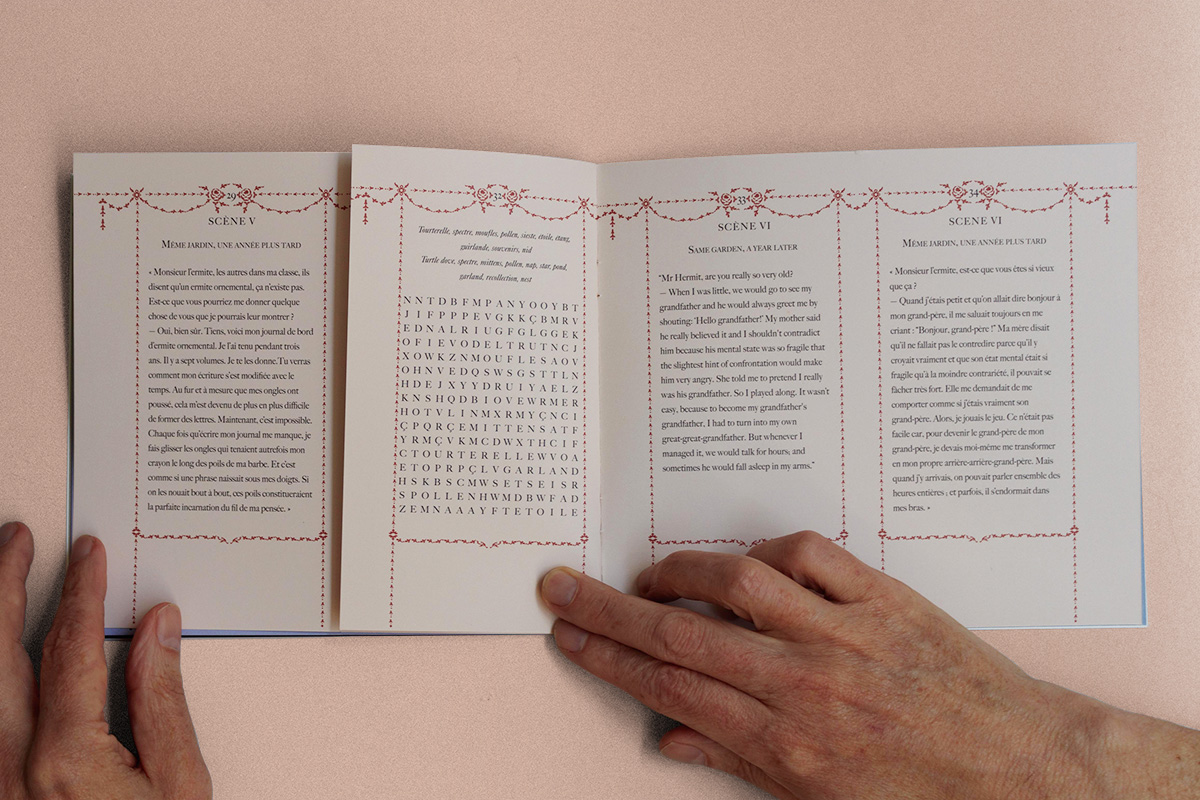 29
SCÈNE V
MÊME JARDIN, UNE ANNÉE PLUS TARD
« Monsieur l'ermite, les autres dans ma classe, ils
disent qu'un ermite ornemental, ça n'existe pas.
Est-ce que vous pourriez me donner quelque
chose de vous que je pourrais leur montrer ?
— Oui, bien sûr. Tiens, voici mon journal de bord
d'ermite ornemental. Je l'ai tenu pendant trois
ans. Il y a sept volumes. Je te les donne. Tu verras
comment mon écriture s'est modifiée avec le
temps. Au fur et à mesure que mes ongles ont
poussé, cela m'est devenu de plus en plus difficile
de former des lettres. Maintenant, c'est impossible.
Chaque fois qu'écrire mon journal me manque, je
fais glisser les ongles qui tenaient autrefois mon
crayon le long des poils de ma barbe. Et c'est
comme si une phrase naissait sous mes doigts. Si
on les nouait bout à bout, ces poils constitueraient
la parfaite incarnation du fil de ma pensée. »
32
Tourterelle, spectre, moufles, pollen, sieste, étoile, étang,
guirlande, souvenirs, nid
Turtle dove, spectre, mittens, pollen, nap, star, pond,
garland, recollection, nest
N N T D B F M P A N Y O O Y B T
J I F P P P E V G K K Ç B M R V
E D N A L R I U G F G L G G E K
O F I E V O D E L T R U T N C J
X O W K Z N M O U F L E S A O V
O H N V E D Q S W S G S T T L N
H D E J X Y Y D R U I Y A E L Z
K N S H Q D B I O V E W R M E R
H O T V L I N M X R M Y Ç N C I
Ç P Q R Ç E M I T T E N S A T F
Y R M Ç V K M C D W X T H C I F
C T O U R T E R E L L E W V O A
E T O P R P Ç L V G A R L A N D
H S K B S C M W S E T S E I S R
S P O L L E N H W M D B W F A D
Z E M N A A A Y F T E T O I L E
33
SCENE VI
SAME GARDEN, A YEAR LATER
“Mr Hermit, are you really so very old?
— When I was little, we would go to see my
grandfather and he would always greet me by
shouting: ‘Hello grandfather!’ My mother said
he really believed it and I shouldn't contradict
him because his mental state was so fragile that
the slightest hint of confrontation would make
him very angry. She told me to pretend I really
was his grandfather. So I played along. It wasn't
easy, because to become my grandfather's
grandfather, I had to turn into my own
great-great-grandfather. But whenever I
managed it, we would talk for hours; and
sometimes he would fall asleep in my arms.”
34
SCÈNE VI
MÊME JARDIN, UNE ANNÉE PLUS TARD
« Monsieur l'ermite, est-ce que vous êtes si vieux
que ça ?
— Quand j'étais petit et qu'on allait dire bonjour à
mon grand-père, il me saluait toujours en me
criant : “Bonjour, grand-père !” Ma mère disait
qu'il ne fallait pas le contredire parce qu'il y
croyait vraiment et que son état mental était si
fragile qu'à la moindre contrariété, il pouvait se
fâcher très fort. Elle me demandait de me
comporter comme si j'étais vraiment son
grand-père. Alors, je jouais le jeu. Ce n'était pas
facile car, pour devenir le grand-père de mon
grand-père, je devais moi-même me transformer
en mon propre arrière-arrière-grand-père. Mais
quand j'y arrivais, on pouvait parler ensemble des
heures entières ; et parfois, il s'endormait dans
mes bras. »